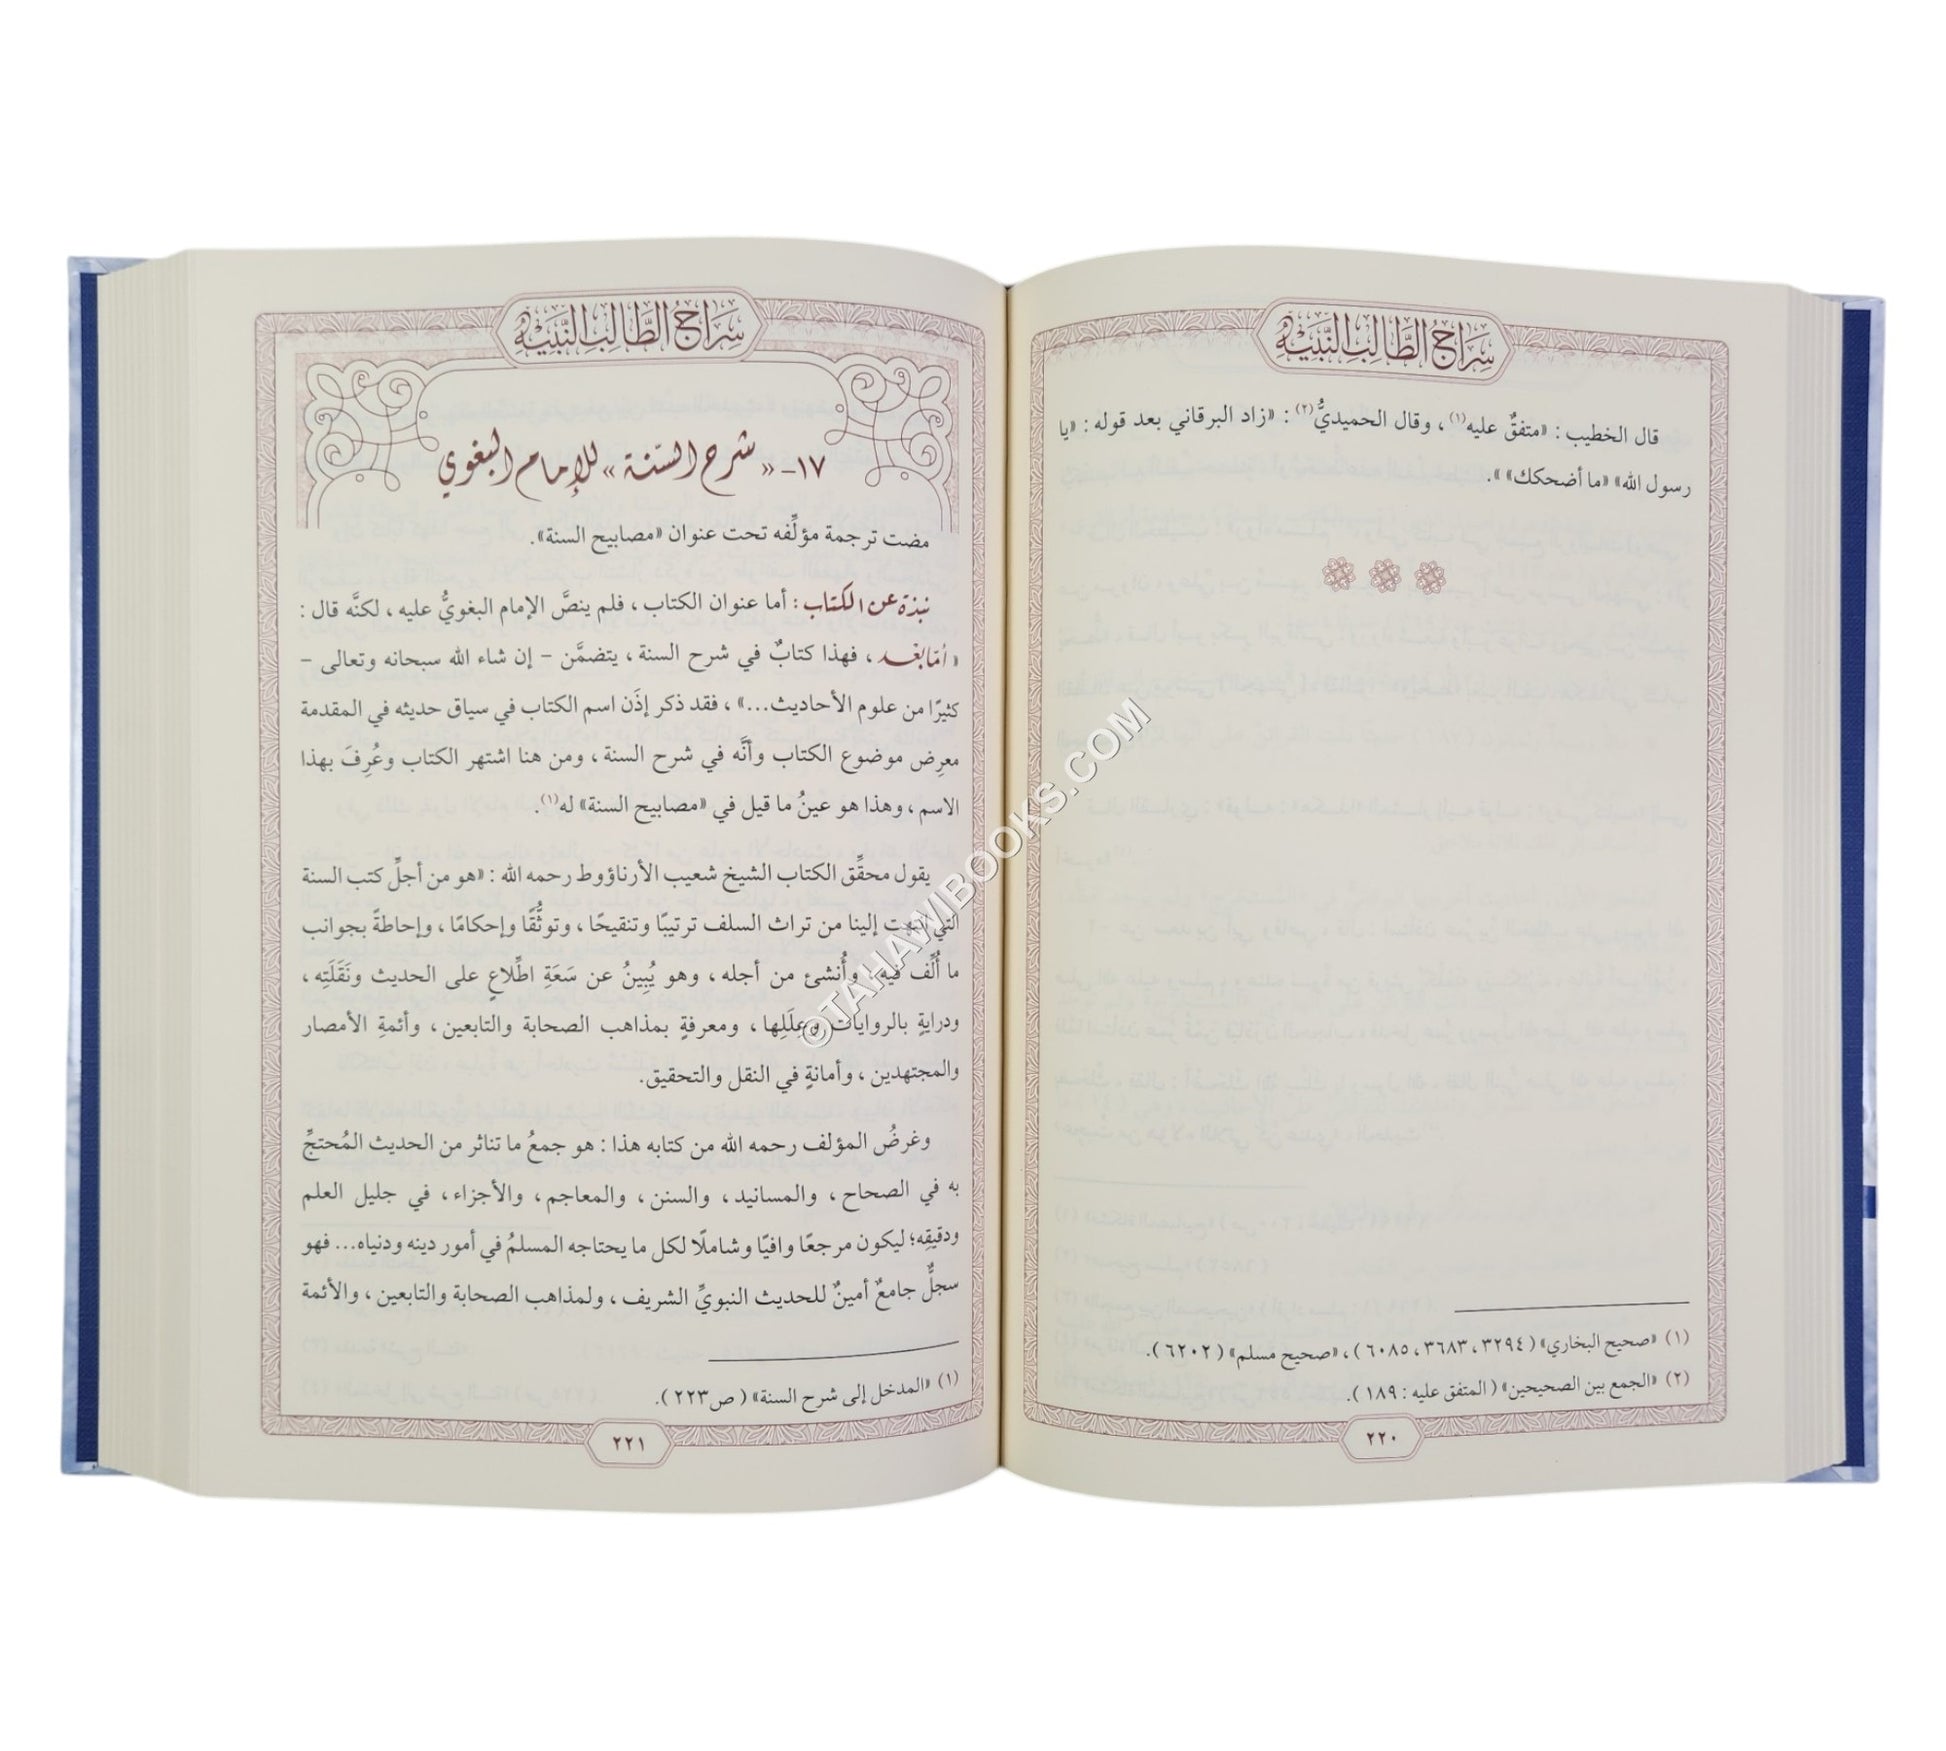 سِرَاجُ الطَّالِبِ النَّبِيْهِ
قال الخطيب : «متفقٌ عليه»(١)، وقال الحميديُّ(٢) : «زاد البرقاني بعد قوله : «يا
رسول الله» «ما أضحكك»».
(١) «صحيح البخاري» (٣٢٩٤، ٣٦٨٣، ٦٠٨٥)، «صحيح مسلم» (٦٢٠٢).
(٢) «الجمع بين الصحيحين» (المتفق عليه : ١٨٩).
٢٢٠
سِرَاجُ الطَّالِبِ النَّبِيْهِ
١٧- «شرح السّنة» للإمام البغوي
مضت ترجمة مؤلِّفه تحت عنوان «مصابيح السنة».
نبذة عن الكتاب : أما عنوان الكتاب، فلم ينصَّ الإمام البغويُّ عليه، لكنَّه قال :
«أمّا بعْد، فهذا كتابٌ في شرح السنة، يتضمَّن – إن شاء الله سبحانه وتعالى –
كثيرًا من علوم الأحاديث...»، فقد ذكر إذَن اسم الكتاب في سياق حديثه في المقدمة
معرِض موضوع الكتاب وأنَّه في شرح السنة، ومن هنا اشتهر الكتاب وعُرِفَ بهذا
الاسم، وهذا هو عينُ ما قيل في «مصابيح السنة» له(١).
يقول محقِّق الكتاب الشيخ شعيب الأرناؤوط رحمه الله : «هو من أجلِّ كتب السنة
التي إلينا من تراث السلف ترتيبًا وتنقيحًا، وتوثُّقًا وإحكامًا، وإحاطةً بجوانب
ما أُلِّف فيه، وأُنشئ من أجله، وهو يُبِينُ عن سَعَةِ اطِّلاعٍ على الحديث ونَقَلَتِه،
ودرايةٍ بالروايات وعِلَلِها، ومعرفةٍ بمذاهب الصحابة والتابعين، وأئمةِ الأمصار
والمجتهدين، وأمانةٍ في النقل والتحقيق.
وغرضُ المؤلف رحمه الله من كتابه هذا : هو جمعُ ما تناثر من الحديث المُحتجِّ
به في الصحاح، والمسانيد، والسنن، والمعاجم، والأجزاء، في جليل العلم
ودقيقِه؛ ليكون مرجعًا وافيًا وشاملًا لكل ما يحتاجه المسلمُ في أمور دينه ودنياه... فهو
سجلٌّ جامعٌ أمينٌ للحديث النبويِّ الشريف، ولمذاهب الصحابة والتابعين، والأئمة
(١) «المدخل إلى شرح السنة» (ص٢٢٣).
٢٢١
©TAHAWIBOOKS.COM